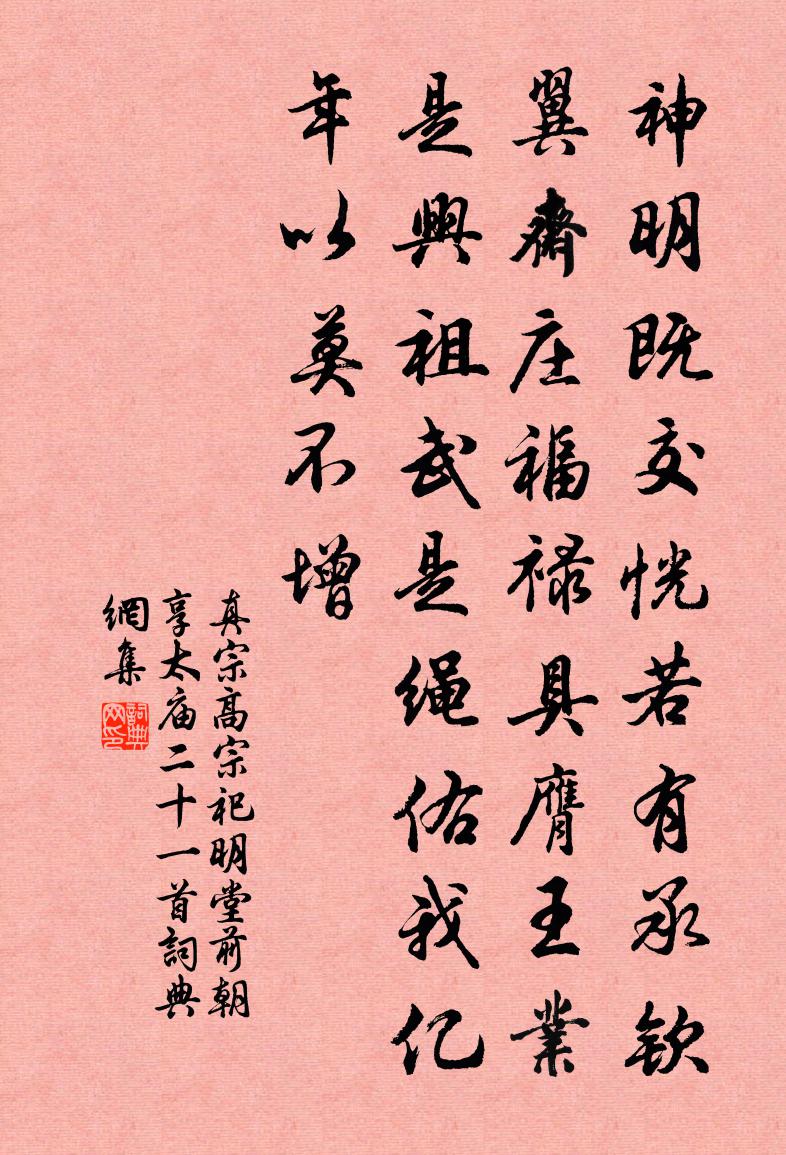 神明既交恍若有承钦
翼齋庄福禄具膺王業
是興祖武是绳佑我亿
年以莫不增
真宗高宗祀明堂前朝
享太庙二十一首詞典
網集
詞典网印